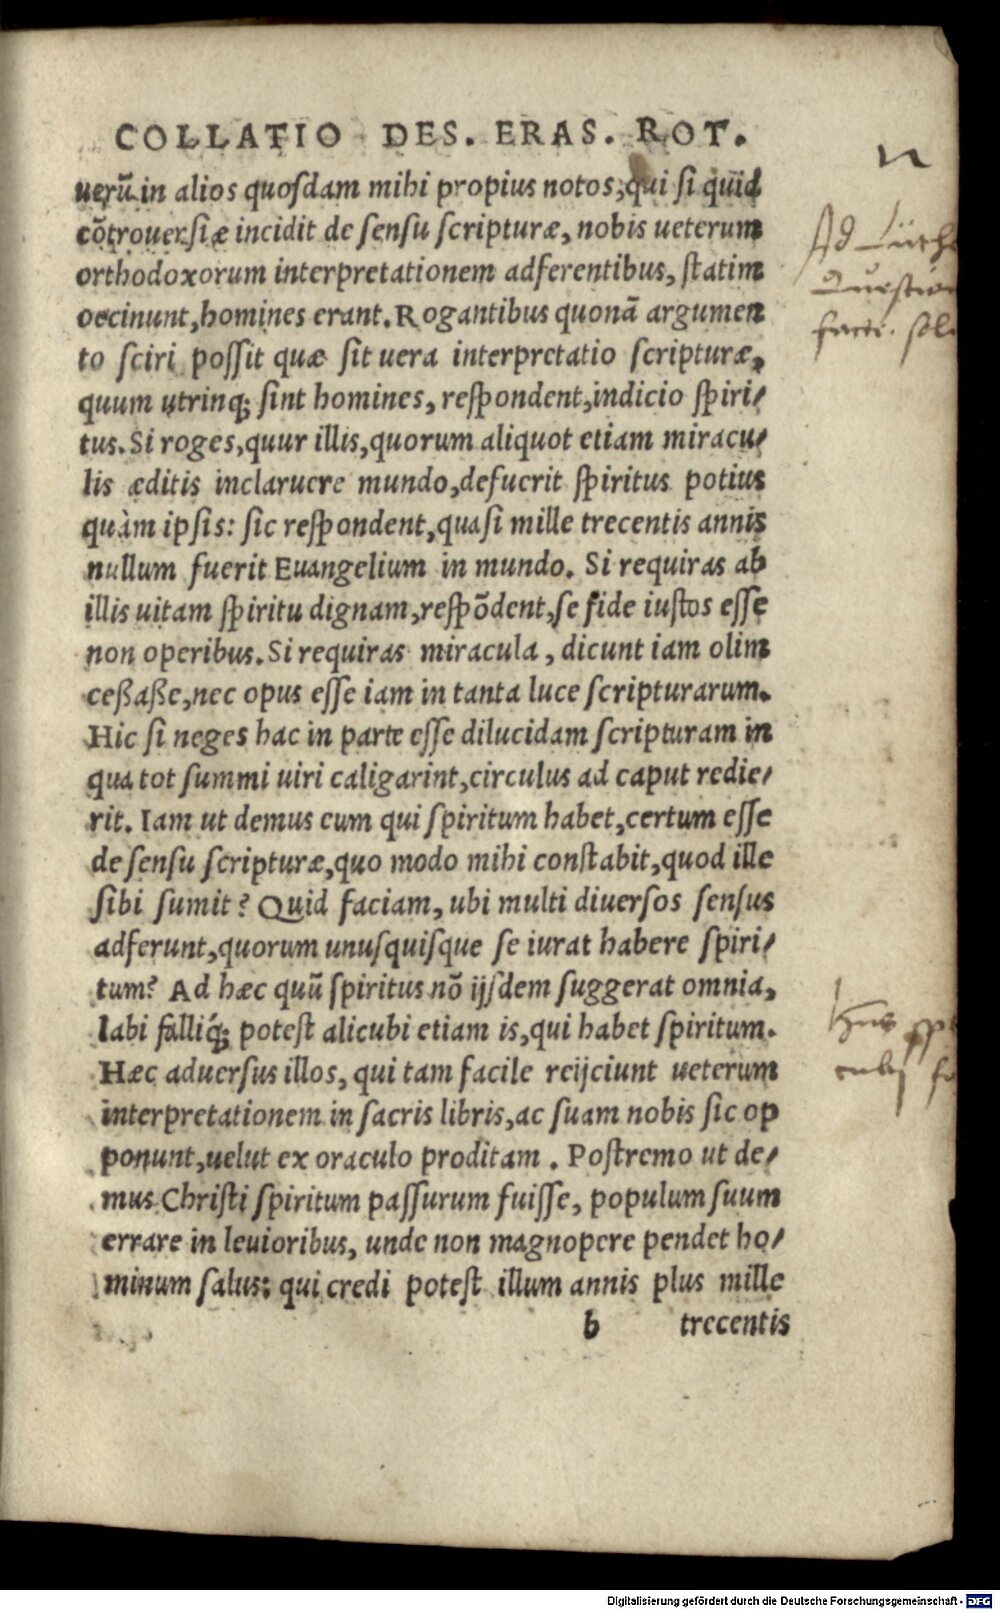 COLLATIO DES. ERAS. ROT.
uerũ in alios quosdam mihi propius notos, qui si quid
cõtrouersiæ incidit de sensu scripturæ, nobis ueterum
orthodoxorum interpretationem adferentibus, statim
occinunt, homines erant. Rogantibus quonã argumen
to sciri possit quæ sit uera interpretatio scripturæ,
quum utrinq; sint homines, respondent, indicio spiri/
tus. Si roges, quur illis, quorum aliquot etiam miracu/
lis æditis inclaruere mundo, defuerit spiritus potius
quàm ipsis: sic respondent, quasi mille trecentis annis
nullum fuerit Euangelium in mundo. Si requiras ab
illis uitam spiritu dignam, respõdent, se fide iustos esse
non operibus. Si requiras miracula, dicunt iam olim
ceßaße, nec opus esse iam in tanta luce scripturarum.
Hic si neges hac in parte esse dilucidam scripturam in
qua tot summi uiri caligarint, circulus ad caput redie/
rit. Iam ut demus eum qui spiritum habet, certum esse
de sensu scripturæ, quo modo mihi constabit, quod ille
sibi sumit? Quid faciam, ubi multi diuersos sensus
adferunt, quorum unusquisque se iurat habere spiri/
tum? Ad hæc quũ spiritus nõ ijsdem suggerat omnia,
labi falliq́; potest alicubi etiam is, qui habet spiritum.
Hæc aduersus illos, qui tam facile reijciunt ueterum
interpretationem in sacris libris, ac suam nobis sic op
ponunt, uelut ex oraculo proditam. Postremo ut de/
mus Christi spiritum passurum fuisse, populum suum
errare in leuioribus, unde non magnopere pendet ho/
minum salus: qui credi potest illum annis plus mille
b trecentis
Ad
Digitalisierung gefördert durch die Deutsche Forschungsgemeinschaft - DFG